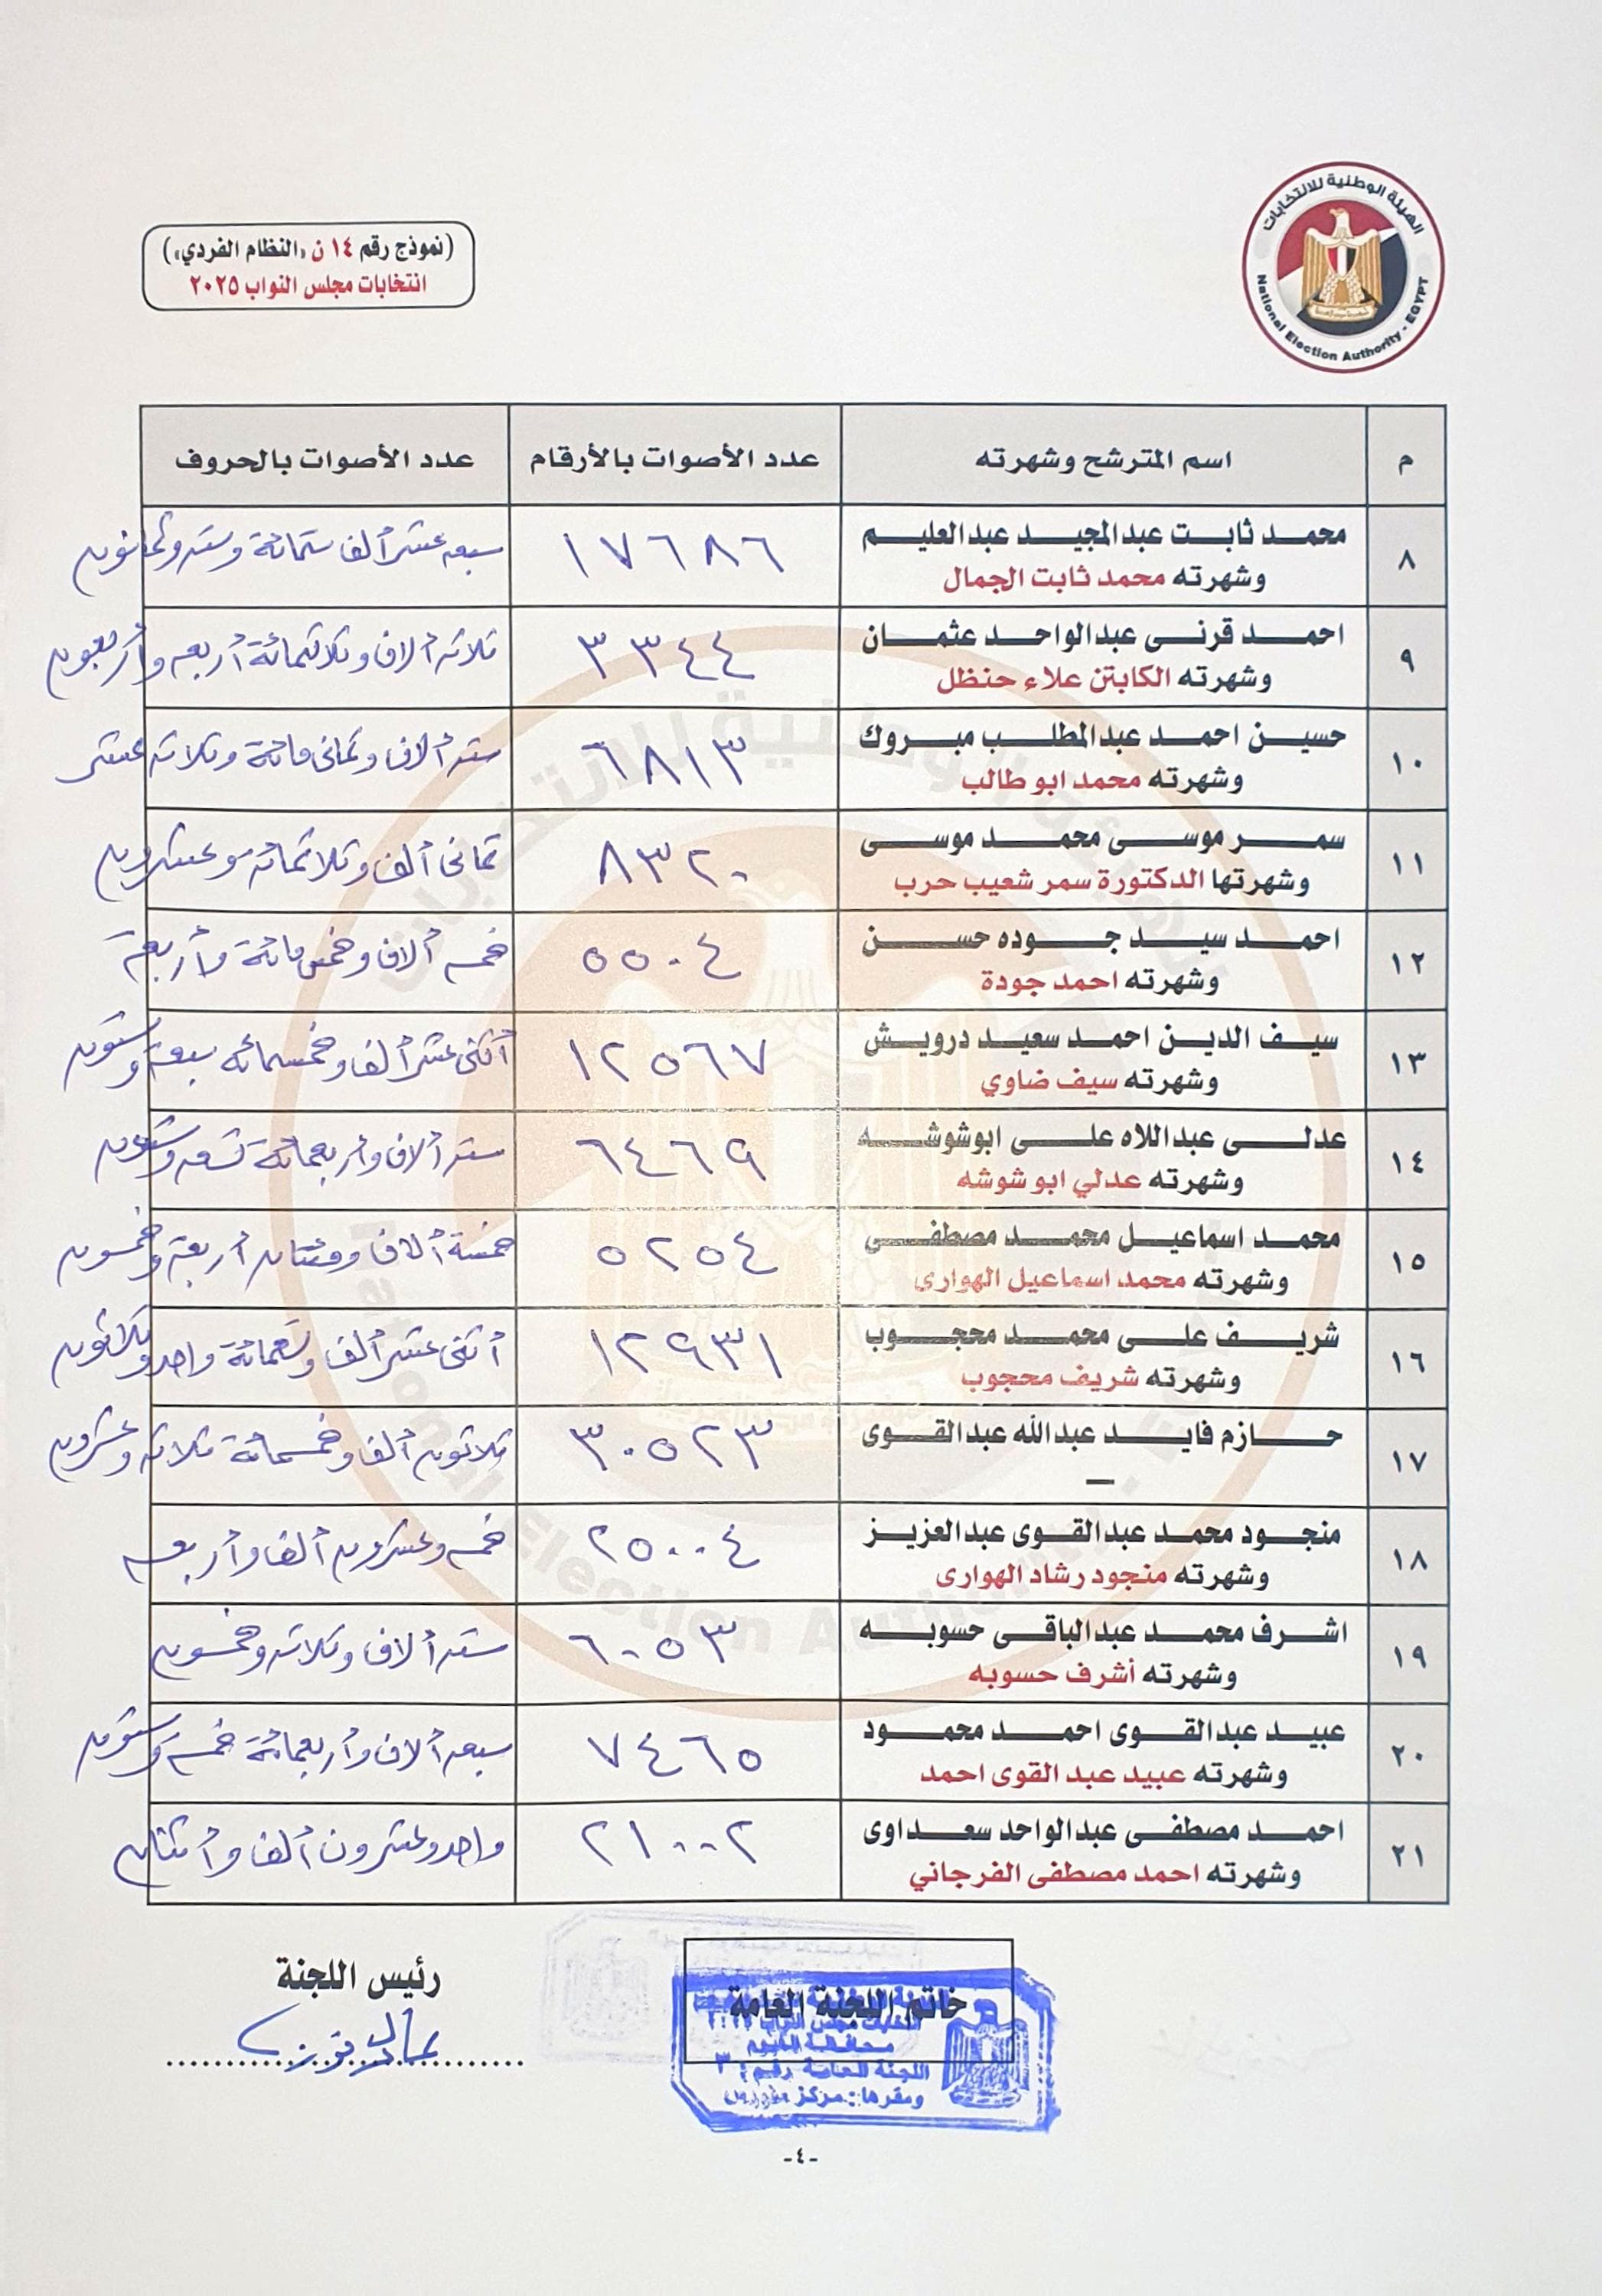 الهيئة الوطنية للانتخابات
National Election Authority - EGYPT
(نموذج رقم ١٤ ن «النظام الفردي»)
انتخابات مجلس النواب ٢٠٢٥
م اسم المترشح وشهرته عدد الأصوات بالأرقام عدد الأصوات بالحروف
٨ محمد ثابت عبدالمجيد عبدالعليم ١٧٦٨٦ سبعه عشر ألف ستمائة وسته وثمانون
وشهرته محمد ثابت الجمال
٩ احمد قرنى عبدالواحد عثمان ٣٣٤٤ ثلاثه ألاف وثلاثمائة أربعه وأربعون
وشهرته الكابتن علاء حنظل
١٠ حسين احمد عبدالمطلب مبروك ٦٨١٣ سته ألاف وثمانى مائة وثلاثه عشر
وشهرته محمد ابو طالب
١١ سمر موسى محمد موسى ٨٣٢٠ ثمانى ألف وثلاثمائه وعشرون
وشهرتها الدكتورة سمر شعيب حرب
١٢ احمد سيد جوده حسن ٥٥٠٤ خمسه ألاف وخمس مائة وأربعة
وشهرته احمد جودة
١٣ سيف الدين احمد سعيد درويش ١٢٥٦٧ أثنى عشر ألف وخمسمائه سبعة وستون
وشهرته سيف ضاوي
١٤ عدلى عبداللاه على ابوشوشه ٦٤٦٩ سته ألاف وأربعمائة تسعه وستون
وشهرته عدلي ابو شوشه
١٥ محمد اسماعيل محمد مصطفى ٥٢٥٤ خمسة ألاف ومئتان أربعة وخمسون
وشهرته محمد اسماعيل الهوارى
١٦ شريف على محمد محجوب ١٢٩٣١ أثنى عشر ألف وتسعمائة واحد وثلاثون
وشهرته شريف محجوب
١٧ حازم فايد عبدالله عبدالقوى ٣٠٥٢٣ ثلاثون ألف وخمسمائة ثلاثه وعشرون
—
١٨ منجود محمد عبدالقوى عبدالعزيز ٢٥٠٠٤ خمسه وعشرون ألف وأربعه
وشهرته منجود رشاد الهوارى
١٩ اشرف محمد عبدالباقى حسوبه ٦٠٥٣ سته ألاف وثلاثه وخمسون
وشهرته أشرف حسوبه
٢٠ عبيد عبدالقوى احمد محمود ٧٤٦٥ سبعه ألاف وأربعمائة خمسة وستون
وشهرته عبيد عبد القوى احمد
٢١ احمد مصطفى عبدالواحد سعداوى ٢١٠٠٢ واحد وعشرون ألف وأثنان
وشهرته احمد مصطفى الفرجاني
رئيس اللجنة
خاتم اللجنة العامة
محافظة الفيوم
اللجنة العامة رقم: ٣
ومقرها: مركز
-٤-